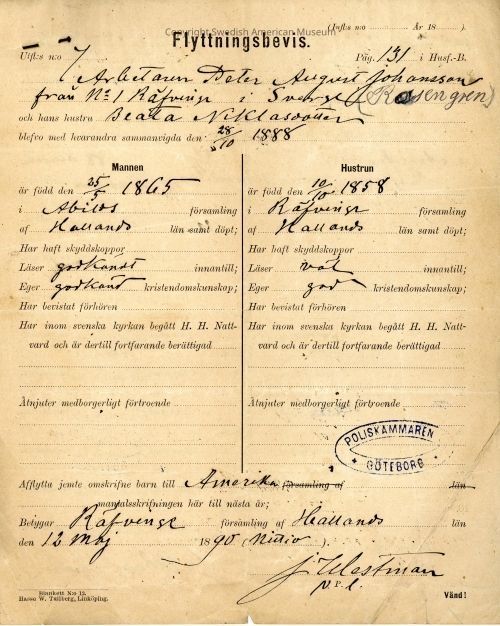 Copyright Swedish American Museum
(Insfls: n:o År 18 ).
Flyttningsbevis.
Utfls: n:o 7 Pag. 131 i Husf.-B.
Arbetaren Peter August Johansson
från No 1 Räfvinge i Sverge (Rosengren)
och hans hustru Beata Niklasdotter
blefvo med hvarandra sammanvigda den 28/10 1888
Mannen
är född den 25/5 1865
i Abilds församling
af Hallands län samt döpt;
Har haft skyddskoppor
Läser godkändt innantill;
Eger godkänd kristendomskunskap;
Har bevistat förhören
Har inom svenska kyrkan begått H. H. Natt-
vard och är dertill fortfarande berättigad
Åtnjuter medborgerligt förtroende
Hustrun
är född den 10/10 1858
i Räfvinge församling
af Hallands län samt döpt;
Har haft skyddskoppor
Läser väl innantill;
Eger god kristendomskunskap;
Har bevistat förhören
Har inom svenska kyrkan begått H. H. Natt-
vard och är dertill fortfarande berättigad
Åtnjuter medborgerligt förtroende
POLISKAMMAREN
GÖTEBORG
Afflytta jemte omskrifne barn till Amerika församling af län
mantalsskrifningen här till nästa år;
Betygar Räfvinge församling af Hallands län
den 12 Maj 1890 (Nittio).
J. Westman
v. P. l.
Blankett N:o 12.
Hasse W. Tullberg, Linköping.
Vänd!